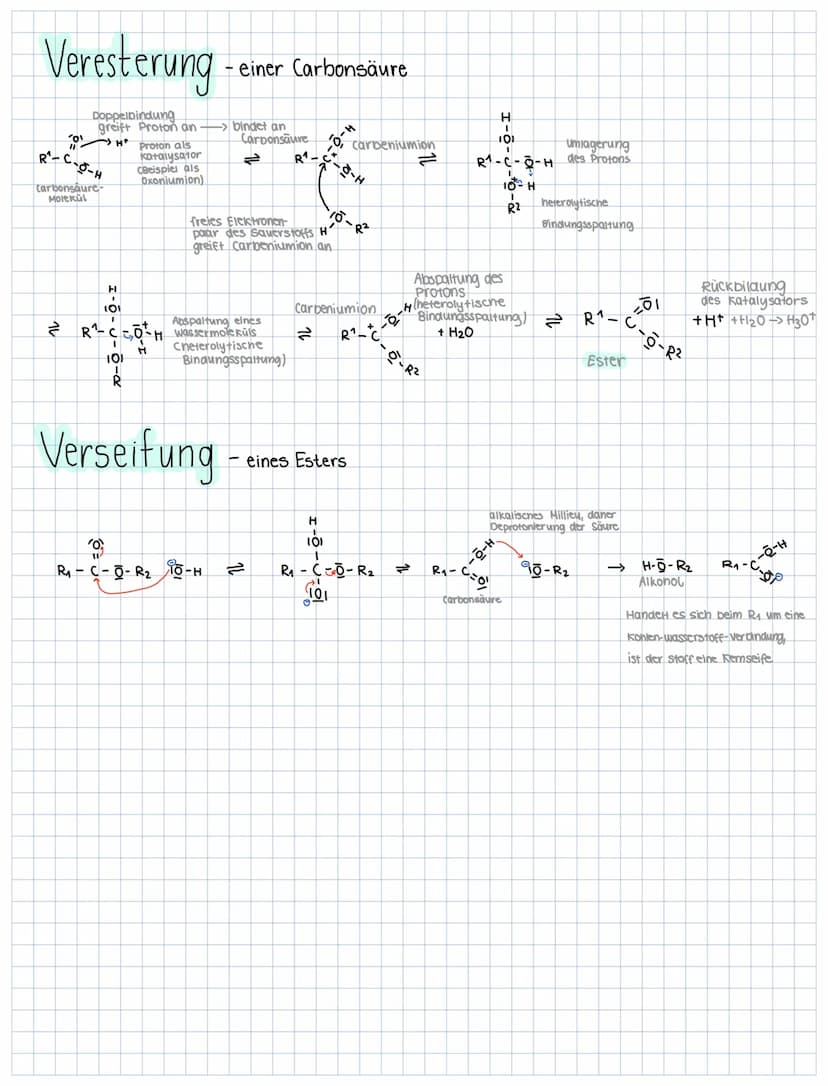 Veresterung - einer Carbonsäure
Doppelbindung
greift Proton an → bindet an
Carbonsäure
H⁺
Proton als
Katalysator
(Beispiel als
Oxoniumion)
R¹-C
O
O-H
Carbonsäure-
Molekül
⇌
R¹-C⁺
O-H
O-H
Carbeniumion
freies Elektronen-
paar des Sauerstoffs
greift Carbeniumion an
H
O-R2
⇌
H
IOI
R¹-C-O-H
IO⁺-H
R2
Umlagerung
des Protons
heterolytische
Bindungsspaltung
⇌
H
IOI
R¹-C-O⁺-H
H
IOI
R
Abspaltung eines
Wassermoleküls
(heterolytische
Bindungsspaltung)
Carbeniumion
⇌
R¹-C⁺
O-H
O-R2
Abspaltung des
Protons
(heterolytische
Bindungsspaltung)
+ H2O
⇌
R¹-C
OI
O-R2
Ester
Rückbildung
des Katalysators
+H⁺ +H2O → H3O⁺
Verseifung - eines Esters
O
R1-C-O-R2
⊖IO-H
⇌
H
IOI
R1-C-O-R2
⊖IOI
⇌
alkalisches Millieu, daher
Deprotonierung der Säure
R1-C
O-H
OI
Carbonsäure
⊖IO-R2
→
H-O-R2
Alkohol
R1-C
O-H
O⊖
Handelt es sich beim R1 um eine
Kohlen-wasserstoff-Verbindung,
ist der Stoff eine Kernseife